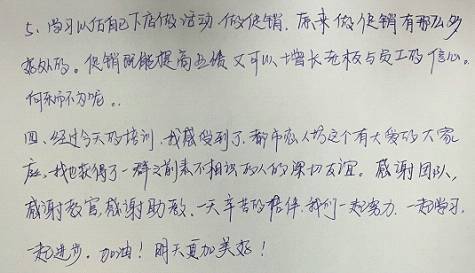 5、学习以后自己下店做活动做促销,原来做促销有那么多
好处的。促销既能提高业绩又可以增长老板与员工的信心。
何乐而不为呢。。
四、经过今天的培训,我感受到了,都市丽人坊这个有大爱的大家
庭。我也获得了一群之前素不相识的人的深切友谊。感谢团队,
感谢教官,感谢助教,一天辛苦的陪伴,我们一起努力,一起学习,
一起进步。加油!明天更加美好!